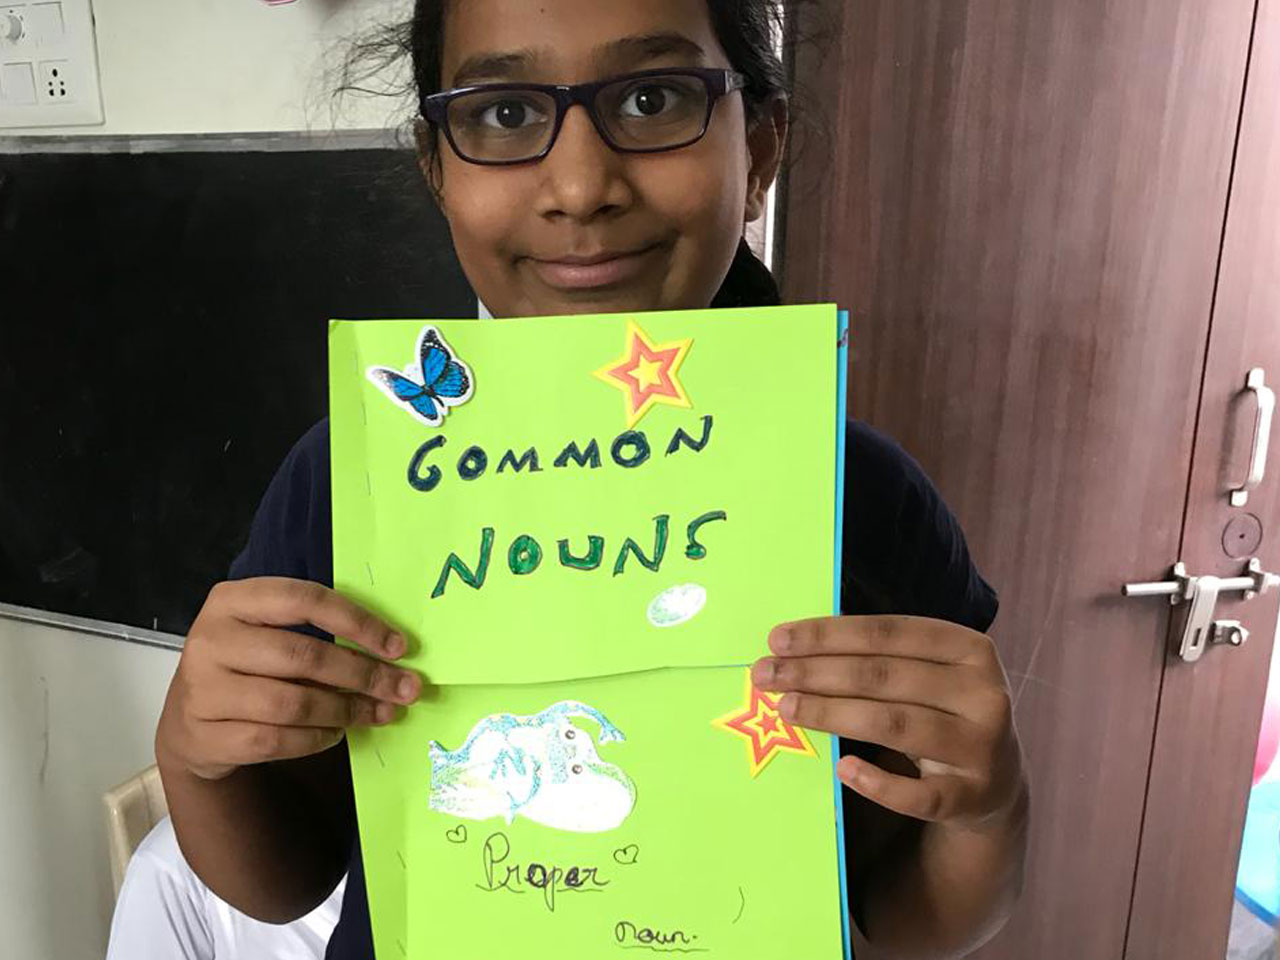 COMMON
NOUNS
Proper
noun.